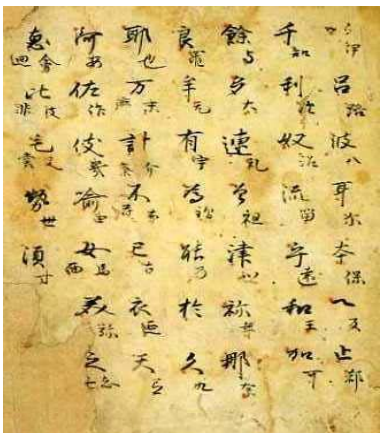 伊呂路波八耳尓本保へ反止都
千知利奴沼流留乎遠和王加可
餘与多太連礼曽祖津祢年那奈
良羅牟无有宇為能乃於久九
耶也万末計介不布己古衣延天弖
阿安佐作伎喩由女馬面美弥之志
恵會廻比皮非毛文勢世須寸